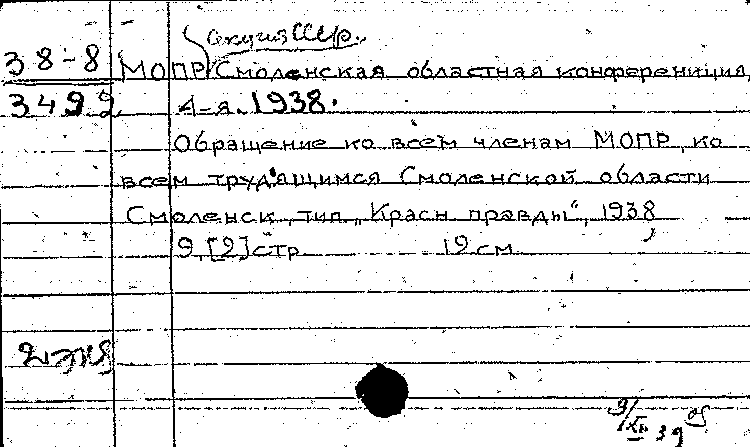 38-8
3499
МОПР Смоленская областная конференция,
4-я. 1938.
Обращение ко всем членам МОПР, ко
всем трудящимся Смоленской области
Смоленск, тип „Красн правды", 1938
9, [2] стр 19 см
2 экз
9/XII 39